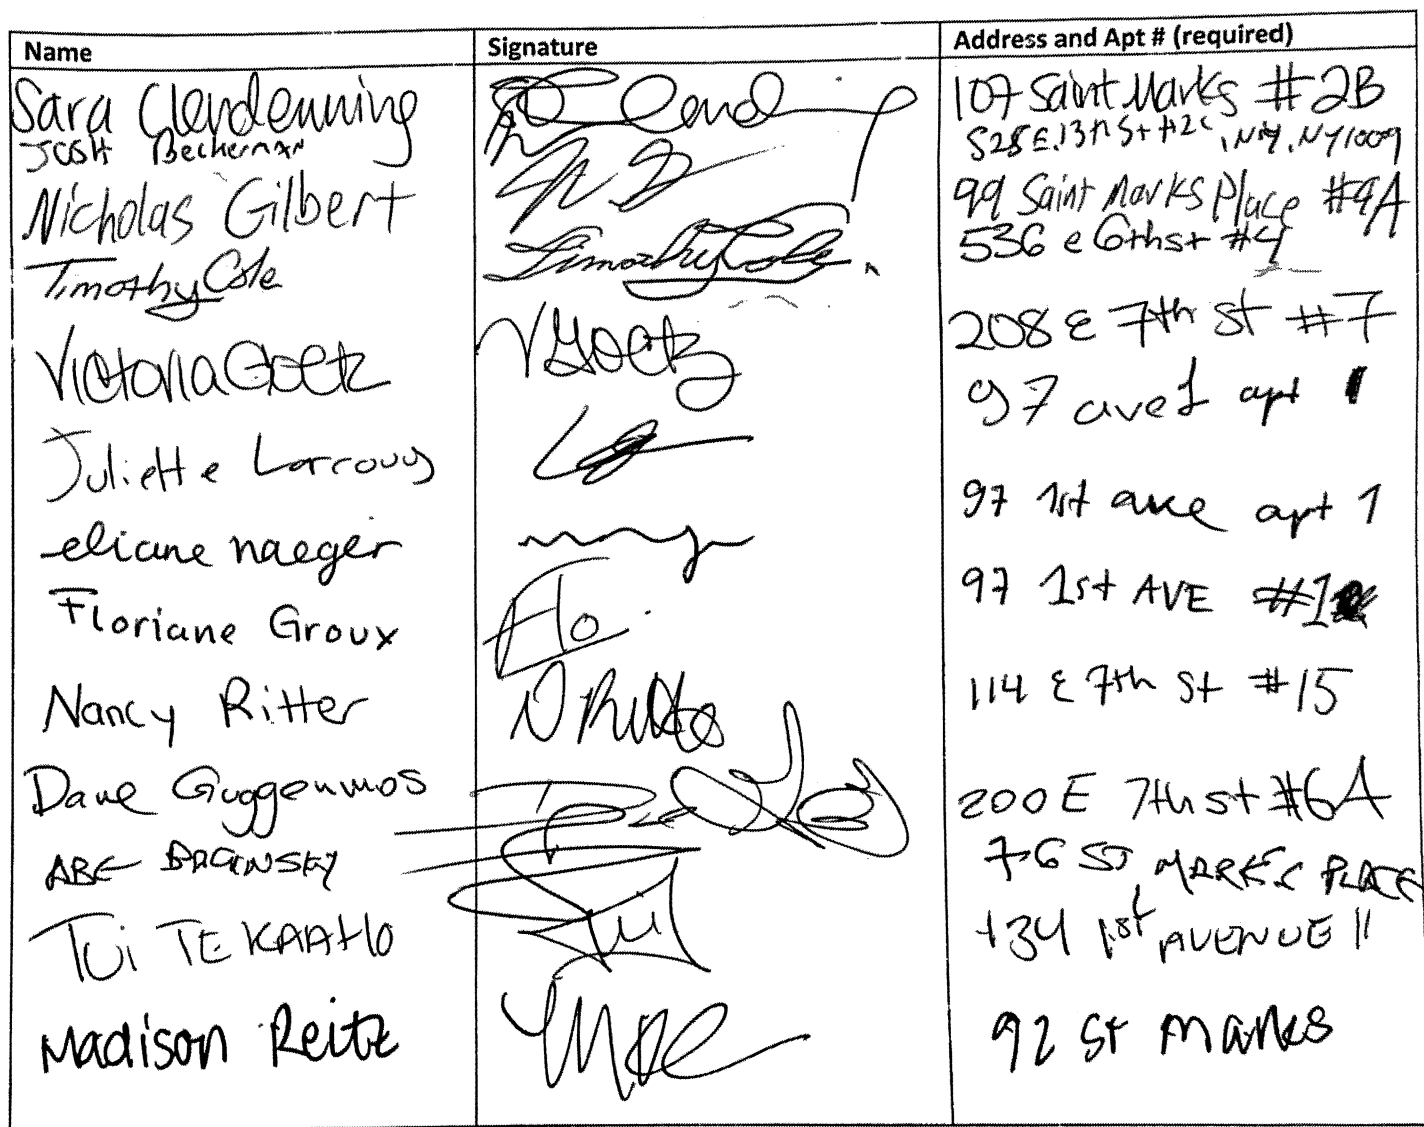 Name Signature Address and Apt # (required)
Sara Clendenning 107 Saint Marks #2B
JOSH Beckerman 528 E. 13th St #2C, NY, NY 1009
Nicholas Gilbert 99 Saint Marks Place #9A
Timothy Cole Timothy Cole 536 e 6th st #4
Victoria Goetz V Goetz 208 E 7th St #7
Juliette 97 ave 1 apt 1
eliane naeger 97 1st ave apt 1
Floriane Groux Flo 97 1st AVE #1
Nancy Ritter N Ritter 114 E 7th St #15
Dave Guggenmos 200 E 7th st #6A
ABE 76 ST MARKS PLACE
TUi TE KAAHO Tui 134 1st AVENUE 11
Madison Reitz 92 St Marks